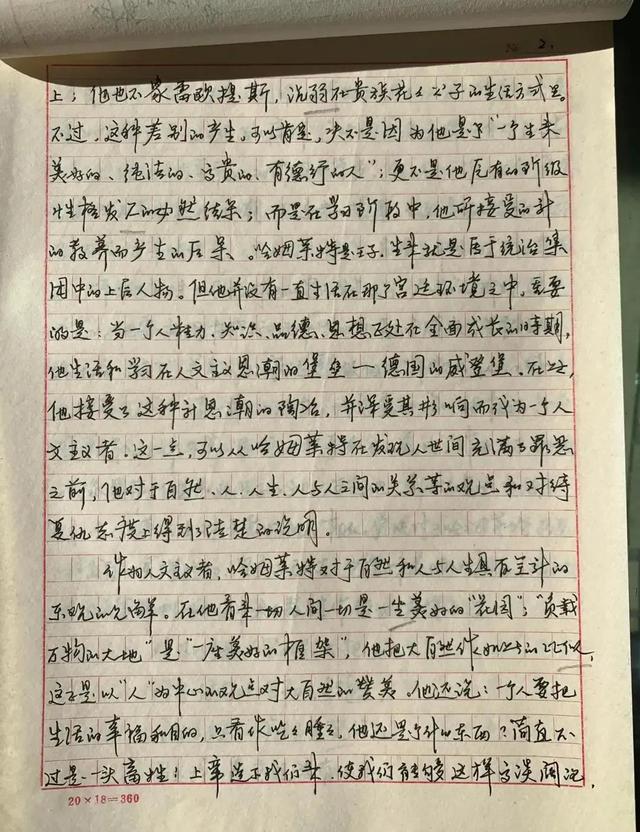 2.
上；他也不象雷欧提斯，沉弱在贵族花花公子的生活方式里。
不过，这种差别的产生，可以肯定，决不是因为他是个“一个生来
美好的、纯洁的、高贵的、有德行的人”；更不是他固有的阶级
性格发展的必然结果；而是在学习阶段中，他所接受的新
的教养而产生的后果。哈姆莱特是王子，生来就是居于统治集
团中的上层人物。但他并没有一直生活在那个宫廷环境之中，重要
的是：当一个人精力、知识、品德、思想正处在全面成长的时期，
他生活和学习在人文主义思潮的堡垒—德国的威登堡。在这里，
他接受了这种新思潮的陶冶，并深受其影响而成为一个人
文主义者。这一点，可以从哈姆莱特在发现人世间充满了罪恶
之前，他对于自然、人、人生、人与人之间的关系等的观点和对待
复仇态度上得到清楚的说明。
作为人文主义者，哈姆莱特对于自然和人与人生具有全新的
乐观的见解。在他看来一切人间一切是一座美好的“花园”；“负载
万物的大地”是“一座美好的框架”，他把大自然作如此的比似，
这正是以“人”为中心的观点对大自然的赞美。他还说：一个人要把
生活的幸福和目的，只看作吃吃睡睡，他还是个什么东西？简直不
过是一头畜牲！上帝造下我们来，使我们能够这样高谈阔论，
20×18=360